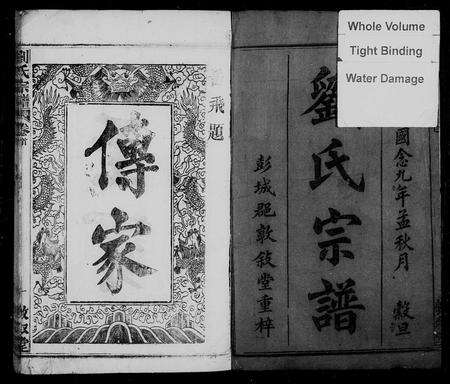 Whole Volume
Tight Binding
Water Damage
國念九年孟秋月 穀旦
劉氏宗譜
彭城郡敦敘堂重梓
飛題
傳家
劉氏宗譜
卷首
敦敘堂